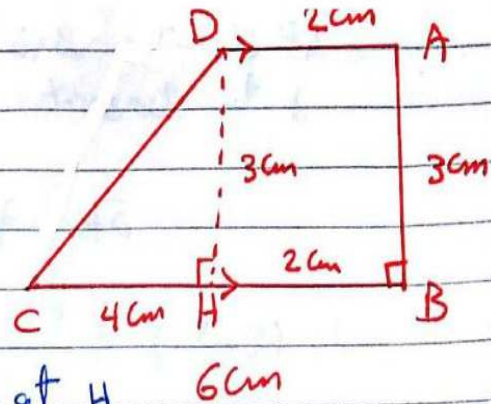 2cm
D A
3cm 3cm
2cm
C 4cm H B
at H 6cm